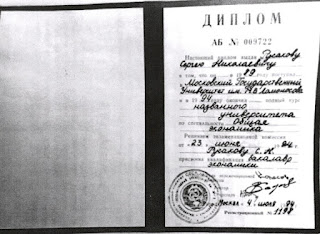 ДИПЛОМ
АБ № 009722
Настоящий диплом выдан Рускову
Сергею Николаевичу
в том, что он в 19 89 году поступил
в Московский Государственный
Университет им. М.В. Ломоносова
и в 19 94 году окончил полный курс
названного
университета
по специальности Общая
экономика
Решением экзаменационной комиссии
от 23 июня 94
С. Н.
присвоена квалификация бакалавр
экономики
Москва 4 июля 94
Регистрационный № 1198